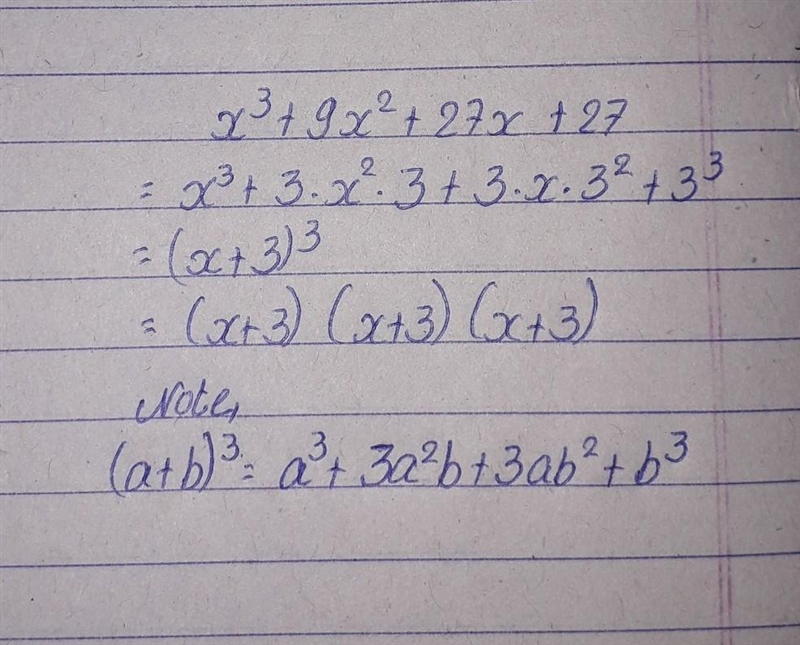 x³+9x²+27x+27
= x³+3·x²·3+3·x·3²+3³
= (x+3)³
= (x+3) (x+3) (x+3)
Note,
(a+b)³= a³+3a²b+3ab²+b³